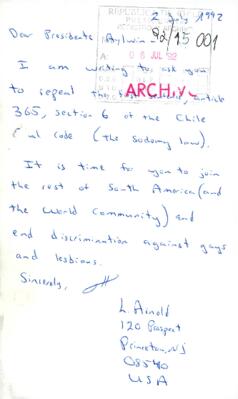 REPUBLICA
2 July 1992
92/15 001
Dear Presidente Aylwin
A: 06 JUL 92
I am writing to ask you
to repeal the article
ARCHIV
365, section 6 of the Chile
al code (the sodomy law).
It is time for you to join
the rest of South America (and
the World Community) and
end discrimination against gays
and lesbians.
Sincerely,
L. Arnold
120 Prospect
Princeton, NJ
08540
USA